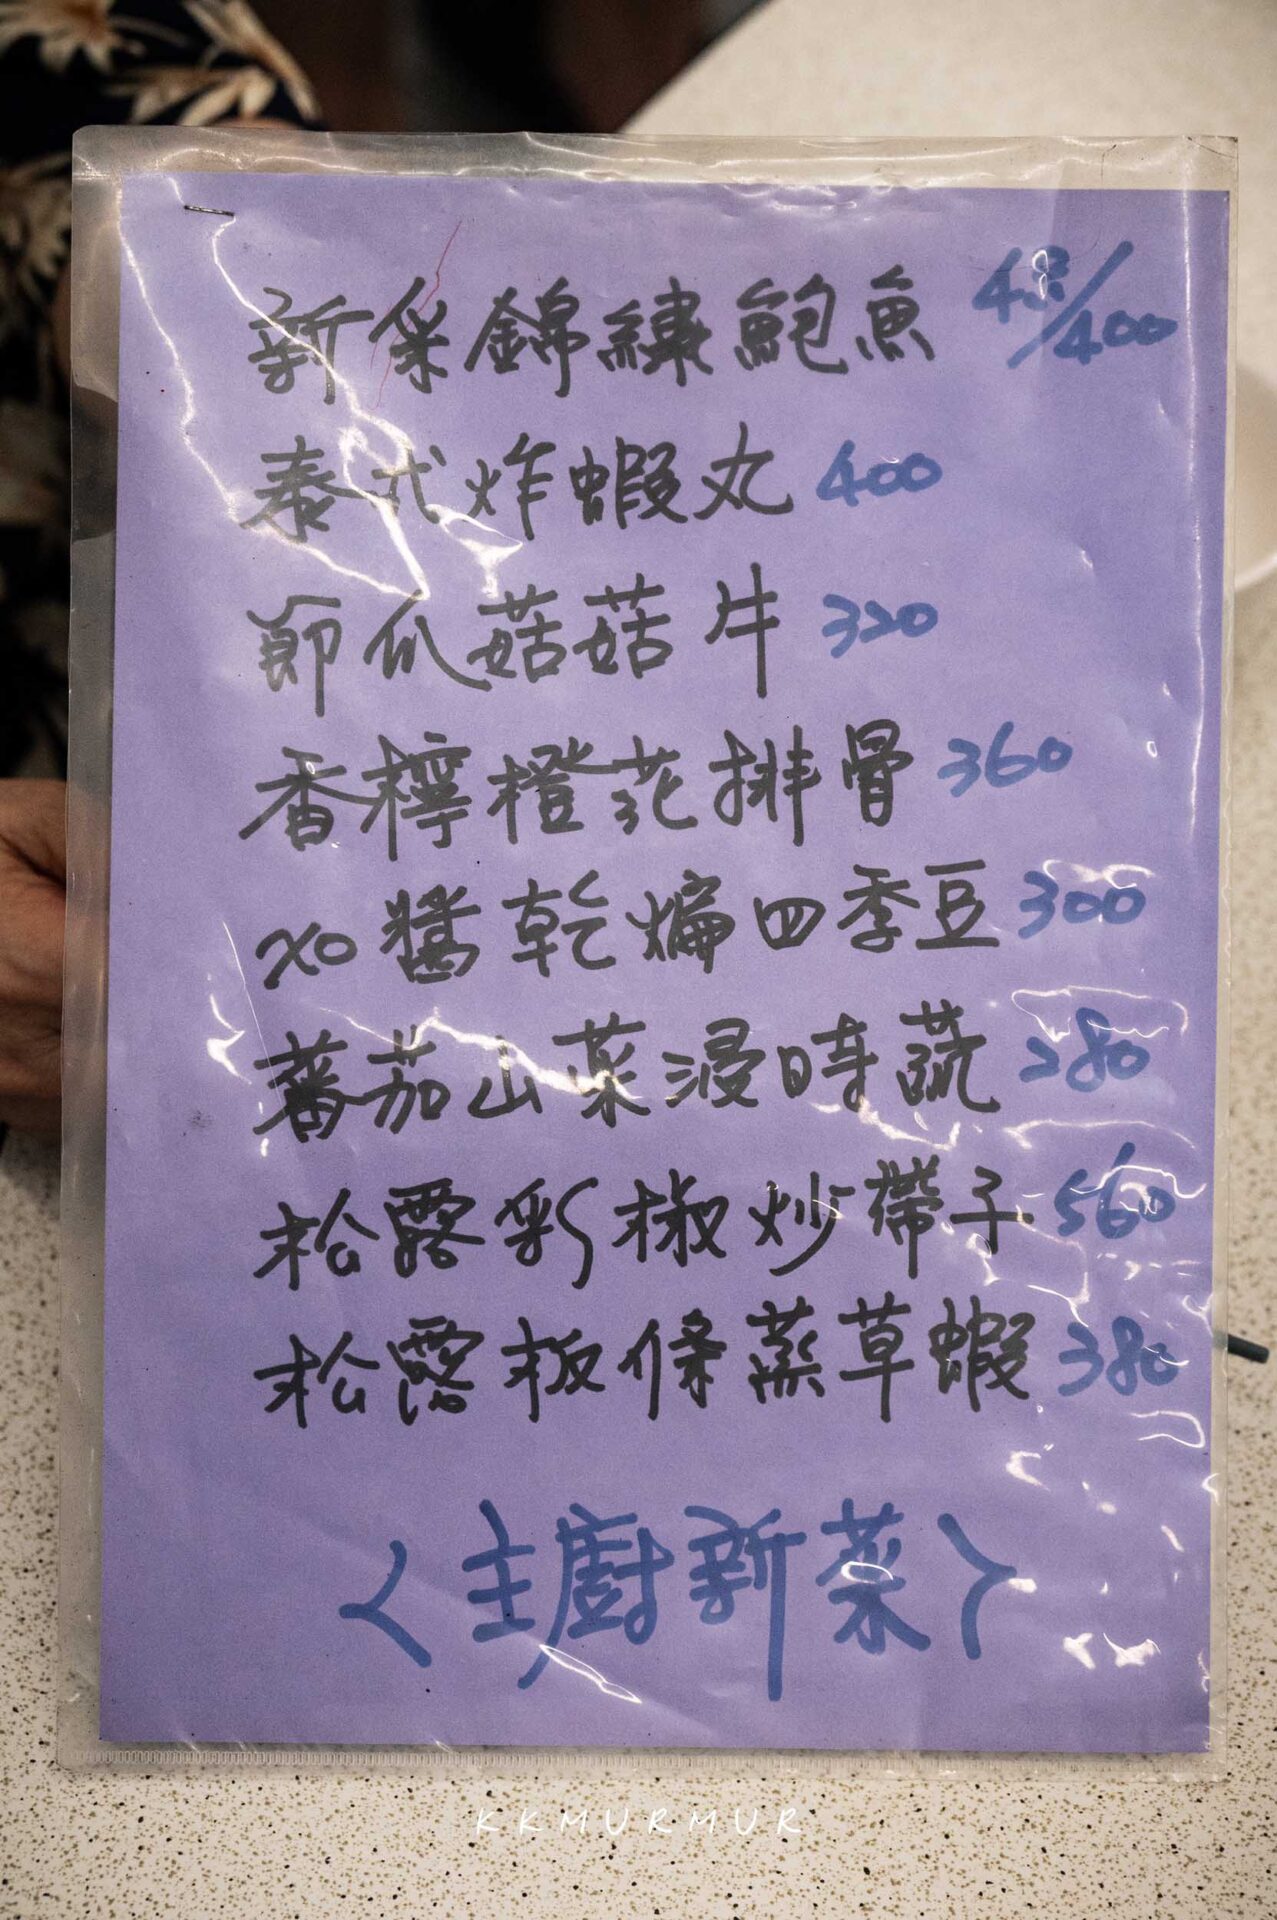 新采錦繡鮑魚 4只/400
泰式炸蝦丸 400
節瓜菇菇片 320
香檸橙花排骨 360
XO醬乾煸四季豆 300
蕃茄山菜浸時蔬 280
松露彩椒炒帶子 560
松露板條蒸草蝦 380
<主廚新菜>
KKMURMUR